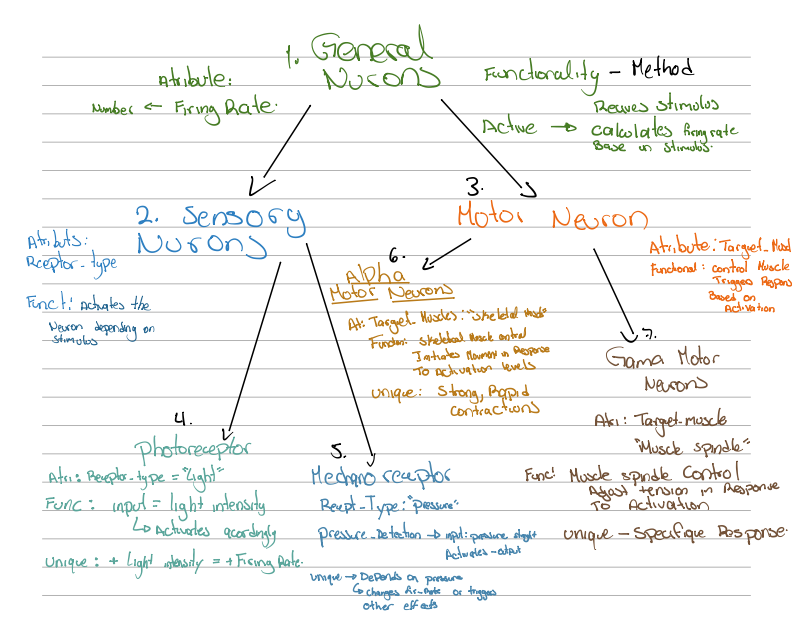 1. General
Nurons
Atribute:
Number ← Firing Rate.
Functionality - Method
Active → calculates firing rate
Base in stimulus.
2. Sensory
Nurons
Atributs:
Rceptor-type
Funct: Activates the
Neuron depending on
stimulus
3.
Motor Neuron
Atribute: Target_Muscl
Functional: control Muscle
Triggers Respons
Based on
Activation
6.
Alpha
Motor Neurons
Atri: Target_Muscles: "Skeletal Muscle"
Function: Skeletal Muscle control
Initiates Movment in Response
To Activation levels
unique: Strong, Rapid
contractions
7.
Gama Motor
Neurons
Atri: Target-muscle
"Muscle spindle"
Func: Muscle spindle Control
Adjust tension in Response
To Activation
unique - Specifique Response.
4.
photoreceptor
Atri: Receptor-type = "Light"
Func: input = light intensity
↳ Activates acordingly
unique: + Light intensity = + Firing Rate.
5.
Mechano receptor
Recept-Type: "pressure"
pressure_Detection → input: pressure
Activates - output
unique → Depends on pressure
↳ changes or triggers
other effects